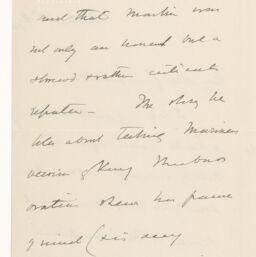 and that Martin was
not only an honest but a
shrewd & rather critical
reporter — The story he
tells about testing Mariner's
version of King
oration shows his frame
of mind (